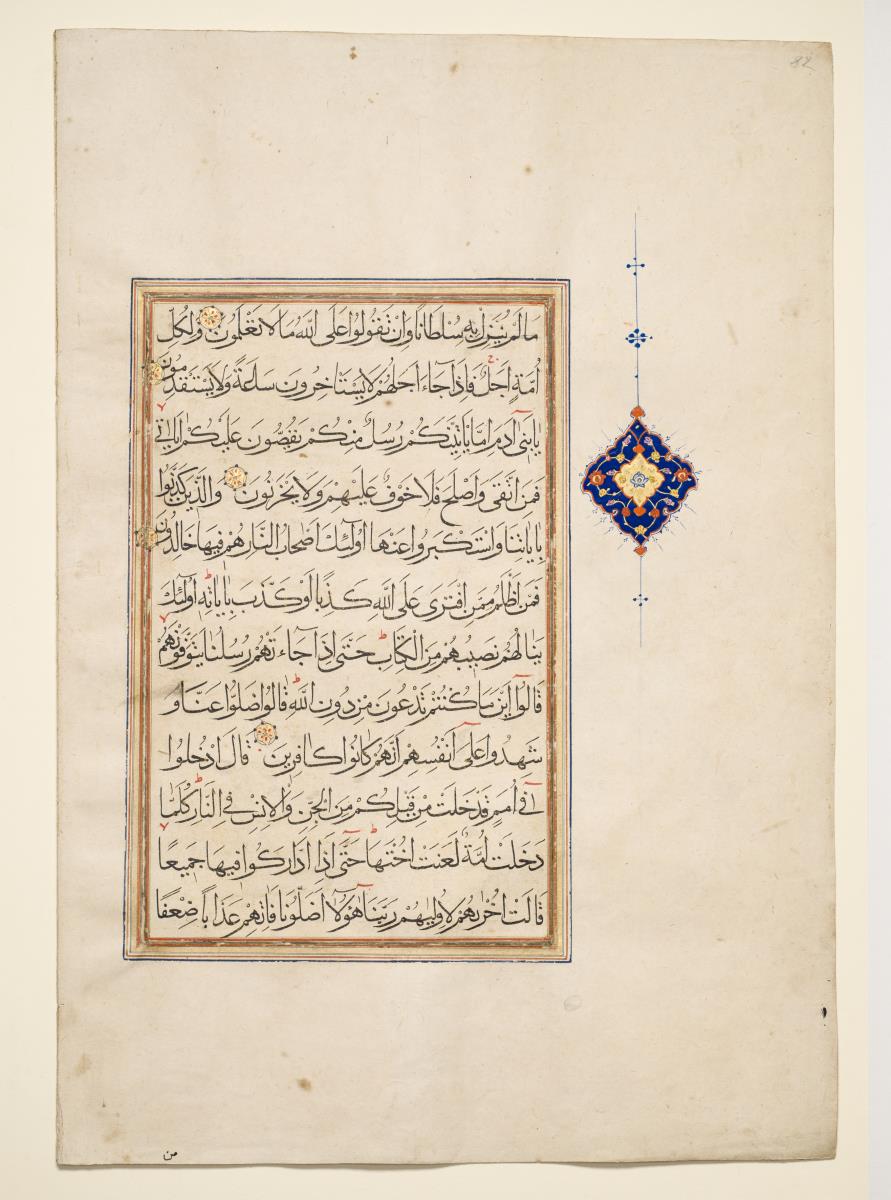 82
مَا لَمْ يُنَزِّلْ بِهِ سُلْطَانًا وَاَنْ تَقُولُوا عَلَى اللّٰهِ مَا لَا تَعْلَمُونَ وَلِكُلِّ
اُمَّةٍ اَجَلٌ فَاِذَا جَاءَ اَجَلُهُمْ لَا يَسْتَاْخِرُونَ سَاعَةً وَلَا يَسْتَقْدِمُونَ
يَا بَنِي آدَمَ اِمَّا يَاْتِيَنَّكُمْ رُسُلٌ مِنْكُمْ يَقُصُّونَ عَلَيْكُمْ اٰيَاتِي
فَمَنِ اتَّقَى وَاَصْلَحَ فَلَا خَوْفٌ عَلَيْهِمْ وَلَا يَحْزَنُونَ وَالَّذِينَ كَذَّبُوا
بِاٰيَاتِنَا وَاسْتَكْبَرُوا عَنْهَا اُولٰٓئِكَ اَصْحَابُ النَّارِ هُمْ فِيهَا خَالِدُونَ
فَمَنْ اَظْلَمُ مِمَّنِ افْتَرَى عَلَى اللّٰهِ كَذِبًا اَوْ كَذَّبَ بِاٰيَاتِهِ اُولٰٓئِكَ
يَنَالُهُمْ نَصِيبُهُمْ مِنَ الْكِتَابِ حَتَّى اِذَا جَاءَتْهُمْ رُسُلُنَا يَتَوَفَّوْنَهُمْ
قَالُوا اَيْنَ مَا كُنْتُمْ تَدْعُونَ مِنْ دُونِ اللّٰهِ قَالُوا ضَلُّوا عَنَّا وَ
شَهِدُوا عَلَى اَنْفُسِهِمْ اَنَّهُمْ كَانُوا كَافِرِينَ قَالَ ادْخُلُوا
فِي اُمَمٍ قَدْ خَلَتْ مِنْ قَبْلِكُمْ مِنَ الْجِنِّ وَالْاِنْسِ فِي النَّارِ كُلَّمَا
دَخَلَتْ اُمَّةٌ لَعَنَتْ اُخْتَهَا حَتَّى اِذَا ادَّارَكُوا فِيهَا جَمِيعًا
قَالَتْ اُخْرٰىهُمْ لِاُولٰىهُمْ رَبَّنَا هٰٓؤُلَاءِ اَضَلُّونَا فَاٰتِهِمْ عَذَابًا ضِعْفًا
من